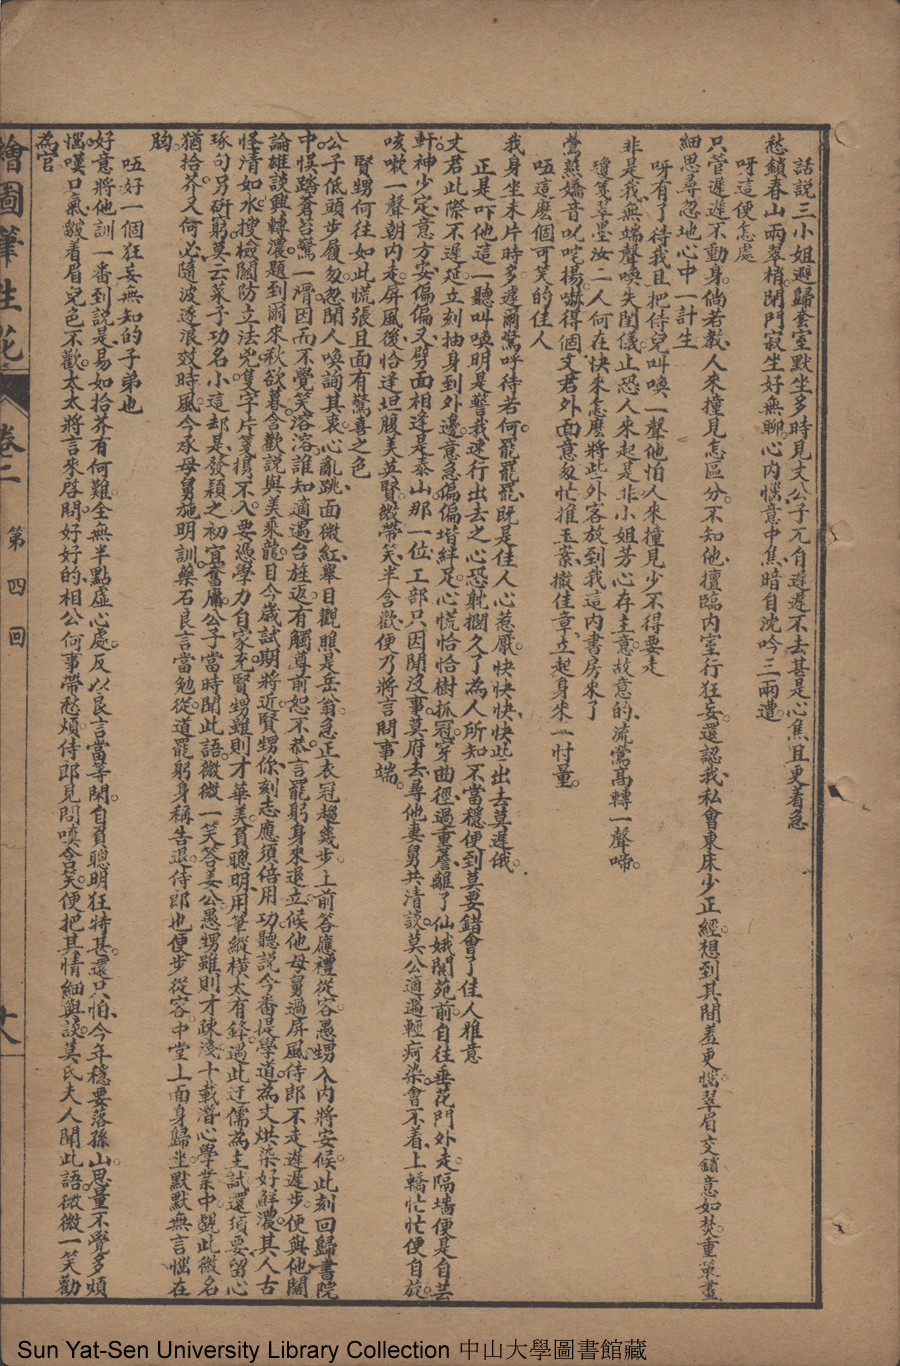 話說三小姐避歸套室默坐多時見文公子兀自遲遲不去甚是心焦且更着急
愁鎖春山兩翠梢。閉門寂坐好無聊。心內惱、意中焦、暗自沈吟三兩遭。
呀這便怎處
只管遲遲不動身。倘若教、人來撞見怎區分。不知他、擅臨內室行狂妄。還認我、私會東床少正經。想到其間羞更惱。翠眉交鎖意如焚。重策畫、
細思尋、忽地心中一計生
呀有了待我且把侍兒叫喚一聲他怕人來撞見少不得要走
非是我、無端聲喚失閨儀。止恐人來起是非。小姐芳心存主意。故意的、流鶯高轉一聲啼。
瓊箋翠墨汝二人何在快來怎麼將些外客放到我這內書房來了
鶯燕嬌音叱咤揚。嚇得個、文君外面意匆忙。推玉案、撤佳章、立起身來一忖量。
哑這麼個可笑的佳人
我身坐未片時多。遽爾驚呼待若何。罷罷罷、既是佳人心惹厭。快快快、快些出去莫遲俄。
正是吓他這一聽叫喚明是警我速行出去之心恐躭擱久了為人所知不當穩便到莫要錯會了佳人雅意
文君此際不遲延。立刻抽身到外邊。意急偏偏堦絆足。心慌恰恰樹抓冠。穿曲徑、過重簷、離了仙娥閬苑前。自往垂花門外走。隔墻便是自芸
軒。神少定、意方安、偏偏又、劈面相逢是泰山。那一位、工部只因閒沒事。莫府去、尋他妻舅共清談。莫公適遇輕疴染。會不着、上轎忙忙便自旋。
咳嗽一聲朝內走。屏風後、恰逢坦腹美英賢。微帶笑、半含歡、便乃將言問事端。
賢甥何往如此慌張且面有驚喜之色
公子低頭步履匆。忽聞人喚詢其衷。心亂跳、面微紅、舉目觀瞧是岳翁。急正衣冠趨幾步。上前答應禮從容。愚甥入內將安候。此刻回歸書院
中。悮踏蒼苔驚一滑。因而不覺笑溶溶。誰知適遇台旌返。有觸尊前恕不恭。言罷躬身來退立。候他母舅過屏風。侍郎不走遲遲步。便與他、閣
論雄談興轉濃。題到雨來秋欲暮。含歡說與美乘龍。目今歲試期將近。賢甥你、刻志應須倍用功。聽說今番提學道。為文烘染好鮮濃。其人古
怪清如水。搜檢關防立法兇。隻字片箋携不入。要憑學力自家充。賢甥雖則才華美。負聰明、用筆縱橫太有鋒。遇此迂儒為主試。還須要、留心
琢句另研窮。莫云菜子功名小。這却是、發穎之初宜奮庸。公子當時聞此語。微微一笑答姜公。愚甥雖則才疎淺。十載潛心學業中。覷此微名
猶拾芥。又何必、隨波逐浪效時風。今承母舅施明訓。藥石良言當勉從。道罷躬身稱告退。侍郎也便步從容。中堂上面身歸坐。默默無言惱在
胸。
哑好一個狂妄無知的子弟也
好意將他訓一番。到說是、易如拾芥有何難。全無半點虛心處。反以良言當等閑。自負聰明狂特甚。還只怕、今年穩要落孫山。思量不覺多煩
惱。嘆口氣、皺着眉兒色不歡。太太將言來啓問。好好的、相公何事帶愁煩。侍郎見問嗔含笑。便把其情細與談。莫氏夫人聞此語。微微一笑勸
為官。
繪圖筆生花
卷二
第四回